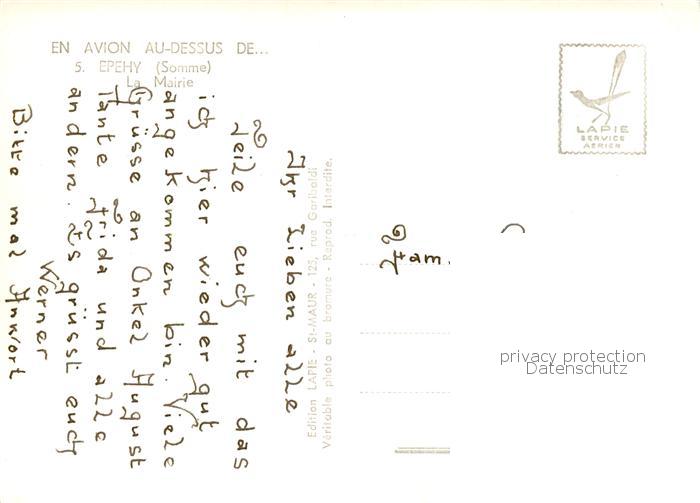 EN AVION AU-DESSUS DE...
5. EPEHY (Somme)
La Mairie
Ihr Lieben alle
Teile euch mit das
ich hier wieder gut
angekommen bin. Viele
Grüsse an Onkel August
Tante Frida und alle
andern. Es grüsst euch
Werner
Bitte mal Anwort
Edition LAPIE - St-MAUR - 125, rue Garibaldi
Véritable photo au bromure - Reprod. Interdite.
LAPIE
SERVICE
AERIEN
Fam.
privacy protection
Datenschutz